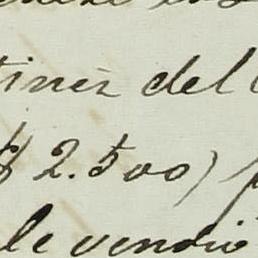 tinez del
$ 2.500)
le vendió